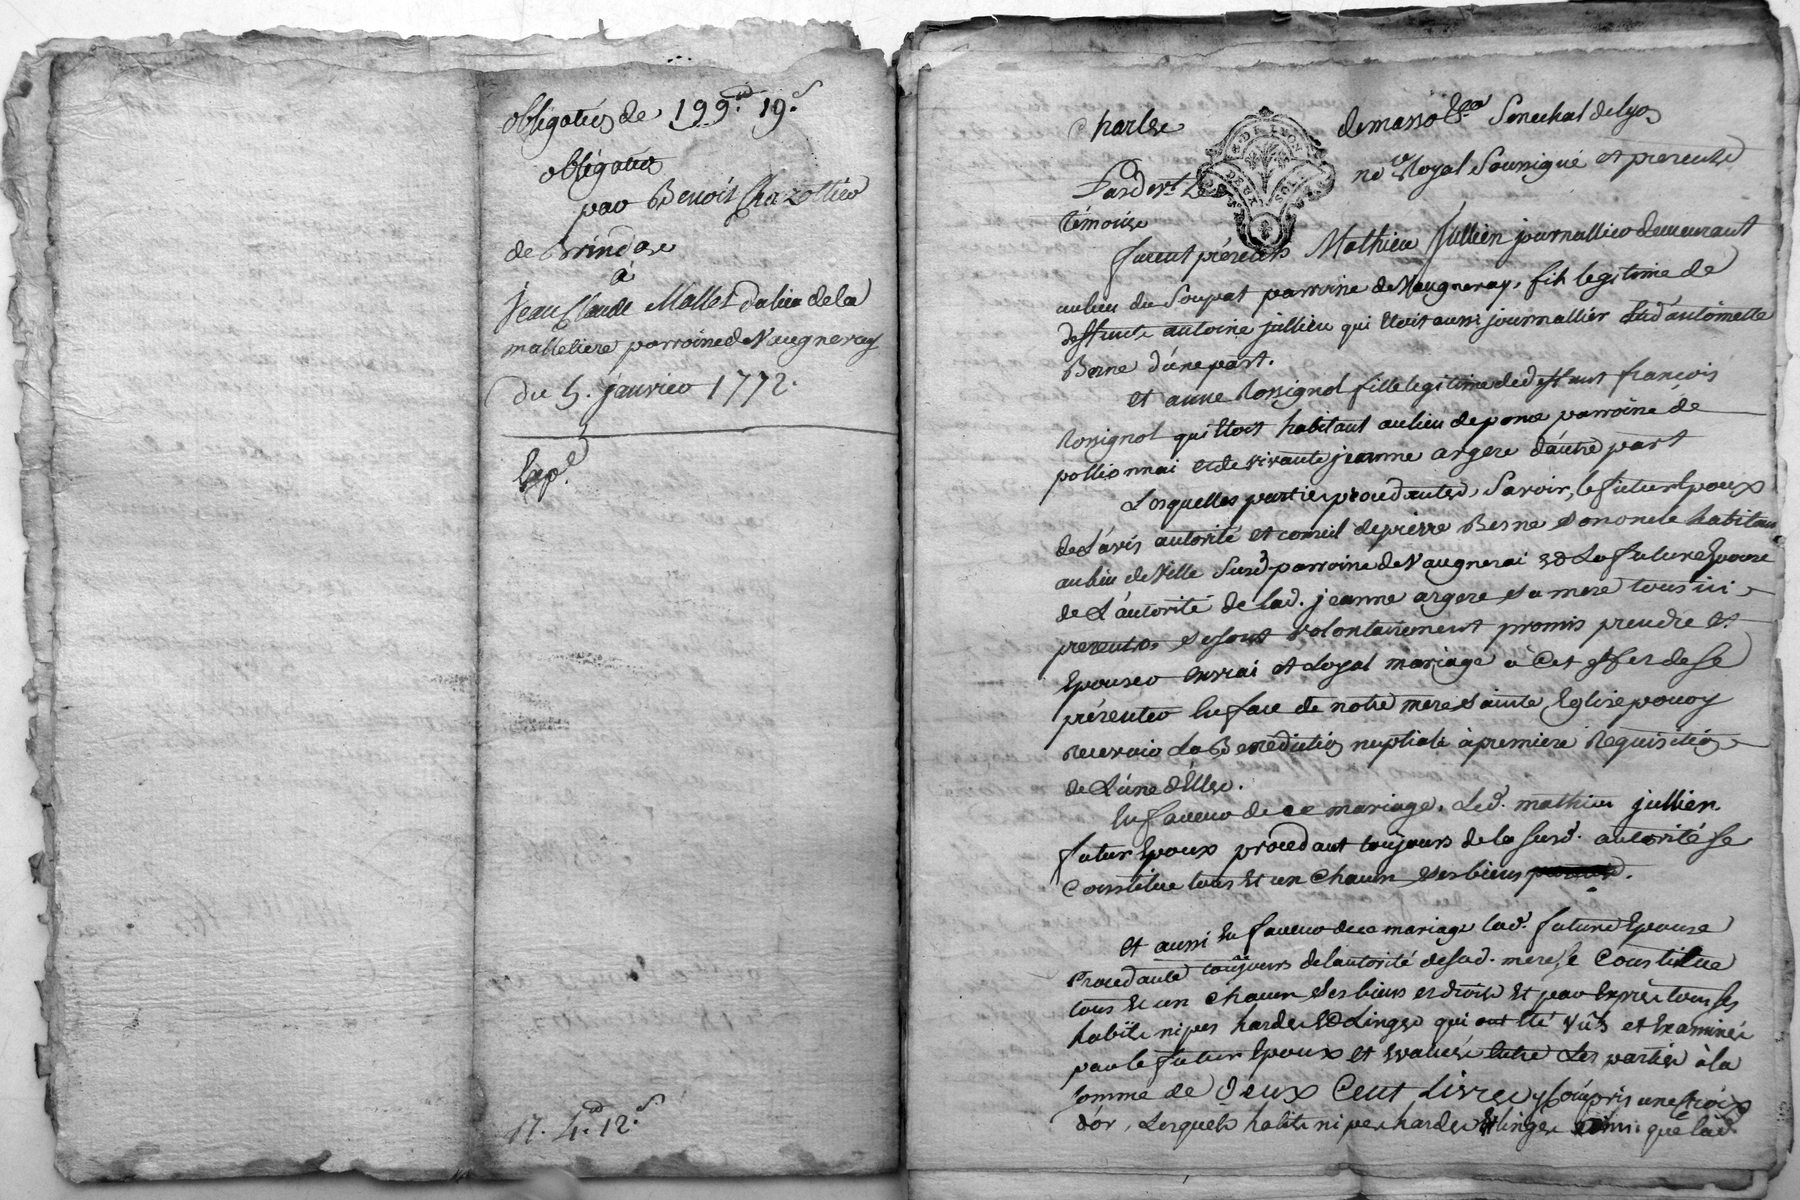 obligation de 199.ᵗᵗ 19.ˢ
obligation
par Benoit Chazottier
de Brindas
à
Jean Claude Mallet du lieu de la
malletiere parroine de Vaugneray
du 5. janvier 1772.
Exp.ᵉ
17. 4.ᵗᵗ 12.ˢ
Charles de masso &ca Senechal de lyon
Pardevt Le no.re Royal Soussigné et presents
témoins
DE LYON
DEUX SOLS
furent présents Mathieu Jullien journallier demeurant
au lieu du Soupat parroine de Vaugneray, fils legitime de
deffunct antoine jullien qui Etoit aussi journallier Et d'antoinette
Berne d'une part.
et anne Rossignol fille legitime de deffunt françois
Rossignol qui Etoit habitant au lieu de ponce parroine de
pollionnai et de vivante jeanne argere d'autre part
Lesquelles parties procedantes, Savoir, le futur Epoux
de L'avis autorité et conseil de pierre Berne son oncle habitant
au lieu de Ville Susd. parroine de Vaugnerai Et La future Epouse
de L'autorité de lad. jeanne argere sa mere tous ici
presents se sont volontairement promis prendre et
Epouser En vrai et Loyal mariage à Cet effet de Se
présenter En face de notre mere Sainte Eglise pour y
Recevoir La Benediction nuptiale à premiere Requisition
de L'une d'Elles.
En faveur de ce mariage, Led. mathieu jullien
futur Epoux procedant toujours de la Susd. autorité Se
Constitue tous Et un chacun Ses biens
et aussi En faveur de ce mariage lad. future Epouse
Procedante toujours de l'autorité de Sad. mere Se Constitue
tous Et un chacun Ses biens et droits Et par Exprès tous Ses
habits nipes hardes Et Linges qui ont Eté vûs et Examinés
par le futur Epoux et Evalués Entre Les parties à la
somme de Deux Cent Livres y Compris une Croix
d'or, Lesquels habits nipes hardes Et linges ainsi que lad.